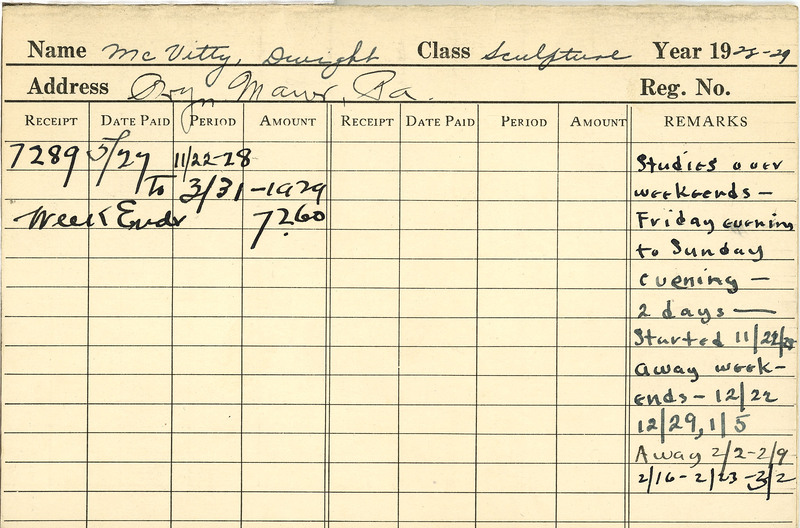 Name Mc Vitty, Dwight Class Sculpture Year 1928-29
Address Bryn Mawr, Pa. Reg. No.
RECEIPT DATE PAID PERIOD AMOUNT RECEIPT DATE PAID PERIOD AMOUNT REMARKS
7289 5/27 11/22-28
To 3/31-1929
Week Ends 72.60
Studies over
weekends -
Friday evening
to Sunday
evening -
2 days -
Started 11/22/28
away week-
ends - 12/22
12/29, 1/5
Away 2/2-2/9
2/16-2/23-3/2